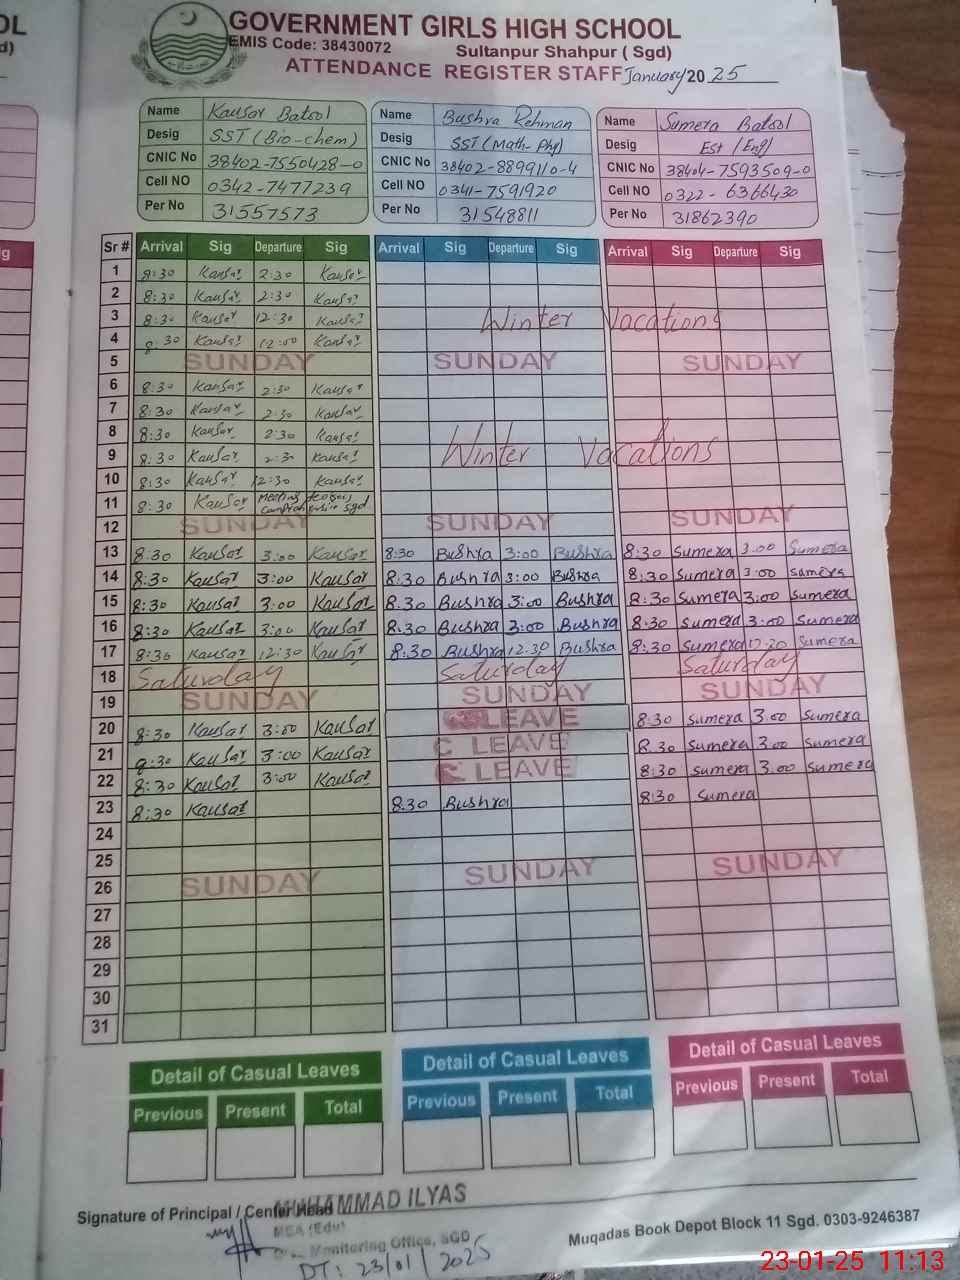 GOVERNMENT GIRLS HIGH SCHOOL
EMIS Code: 38430072 Sultanpur Shahpur ( Sgd)
ATTENDANCE REGISTER STAFF January 2025
Name Kausar Batool Name Bushra Rehman Name Sumera Batool
Desig SST (Bio-chem) Desig SST (Math-Phy) Desig Est (Eng)
CNIC No 38402-7550428-0 CNIC No 38402-8899110-4 CNIC No 38404-7593509-0
Cell NO 0342-7477239 Cell NO 0341-7591920 Cell NO 0322-6366430
Per No 31557573 Per No 31548811 Per No 31862390
Sr # Arrival Sig Departure Sig Arrival Sig Departure Sig Arrival Sig Departure Sig
1 8:30 Kausar 2:30 Kausar
2 8:30 Kausar 2:30 Kausar
3 8:30 Kausar 12:30 Kausar Winter Vacations
4 8:30 Kausar 12:00 Kausar
5 SUNDAY SUNDAY SUNDAY
6 8:30 Kausar 2:30 Kausar
7 8:30 Kausar 2:30 Kausar
8 8:30 Kausar 2:30 Kausar
9 8:30 Kausar 2:30 Kausar Winter Vacations
10 8:30 Kausar 12:30 Kausar
11 8:30 Kausar Meeting sgd
12 SUNDAY SUNDAY SUNDAY
13 8:30 Kausar 3:00 Kausar 8:30 Bushra 3:00 Bushra 8:30 Sumera 3:00 Sumera
14 8:30 Kausar 3:00 Kausar 8:30 Bushra 3:00 Bushra 8:30 Sumera 3:00 Sumera
15 8:30 Kausar 3:00 Kausar 8:30 Bushra 3:00 Bushra 8:30 Sumera 3:00 Sumera
16 8:30 Kausar 3:00 Kausar 8:30 Bushra 3:00 Bushra 8:30 Sumera 3:00 Sumera
17 8:30 Kausar 12:30 Kausar 8:30 Bushra 12:30 Bushra 8:30 Sumera 12:30 Sumera
18 Saturday Saturday Saturday
19 SUNDAY SUNDAY SUNDAY
20 8:30 Kausar 3:00 Kausar LEAVE 8:30 Sumera 3:00 Sumera
21 8:30 Kausar 3:00 Kausar C LEAVE 8:30 Sumera 3:00 Sumera
22 8:30 Kausar 3:00 Kausar C LEAVE 8:30 Sumera 3:00 Sumera
23 8:30 Kausar 8:30 Bushra 8:30 Sumera
24
25
26 SUNDAY SUNDAY SUNDAY
27
28
29
30
31
Detail of Casual Leaves Detail of Casual Leaves Detail of Casual Leaves
Previous Present Total Previous Present Total Previous Present Total
Signature of Principal / Center Head MUHAMMAD ILYAS
MEA (Edu)
Monitoring Office, SGD
DT: 23/01/2025
Muqadas Book Depot Block 11 Sgd. 0303-9246387
23-01-25 11:13